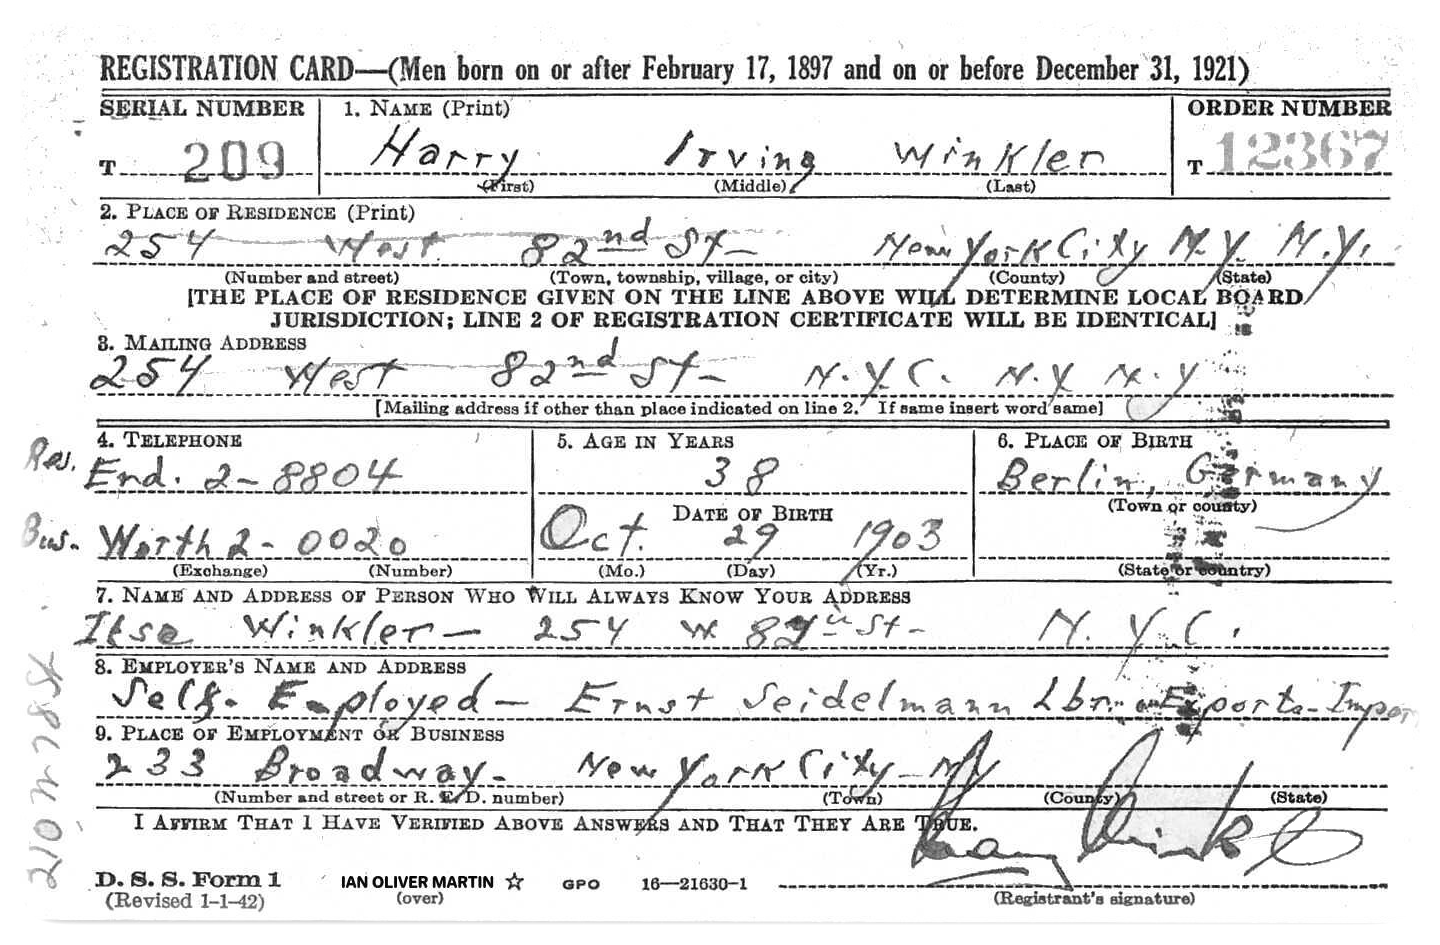 REGISTRATION CARD—(Men born on or after February 17, 1897 and on or before December 31, 1921)
SERIAL NUMBER 1. NAME (Print) ORDER NUMBER
T 209 Harry Irving Winkler T 12367
(First) (Middle) (Last)
2. PLACE OF RESIDENCE (Print)
254 West 82nd St— New York City N.Y. N.Y.
(Number and street) (Town, township, village, or city) (County) (State)
[THE PLACE OF RESIDENCE GIVEN ON THE LINE ABOVE WILL DETERMINE LOCAL BOARD
JURISDICTION; LINE 2 OF REGISTRATION CERTIFICATE WILL BE IDENTICAL]
3. MAILING ADDRESS
254 West 82nd St— N.Y.C. N.Y N.Y
[Mailing address if other than place indicated on line 2. If same insert word same]
4. TELEPHONE 5. AGE IN YEARS 6. PLACE OF BIRTH
Res. End. 2-8804 38 Berlin, Germany
DATE OF BIRTH (Town or county)
Bus. Worth 2-0020 Oct. 29 1903
(Exchange) (Number) (Mo.) (Day) (Yr.) (State or country)
7. NAME AND ADDRESS OF PERSON WHO WILL ALWAYS KNOW YOUR ADDRESS
Ilse Winkler— 254 W 82 St— N.Y.C.
8. EMPLOYER'S NAME AND ADDRESS
Self. Employed— Ernst Seidelmann Lbr. Exports-Impor
9. PLACE OF EMPLOYMENT OR BUSINESS
233 Broadway- New York City-NY
(Number and street or R. F. D. number) (Town) (County) (State)
I AFFIRM THAT I HAVE VERIFIED ABOVE ANSWERS AND THAT THEY ARE TRUE.
Harry Winkler
D. S. S. Form 1 IAN OLIVER MARTIN ☆ GPO 16—21630-1
(Revised 1-1-42) (over) (Registrant's signature)